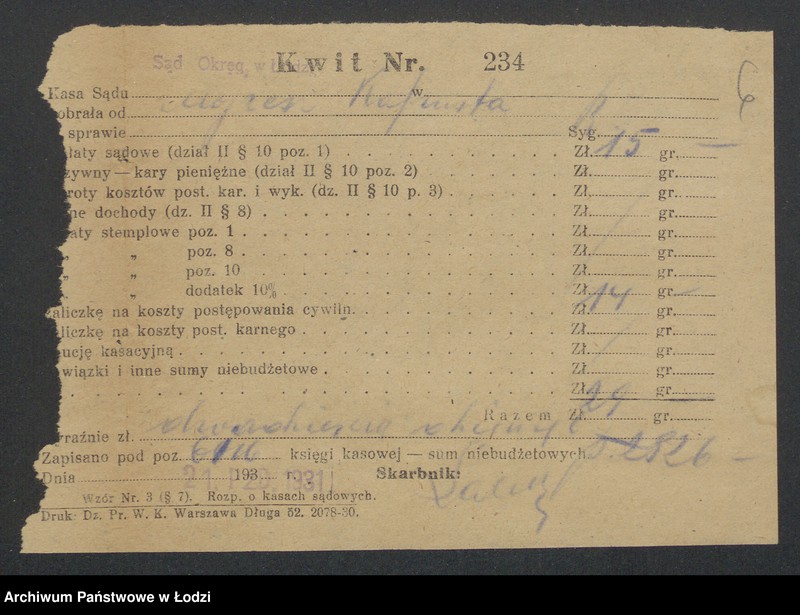 Sąd Okręg. w Łodzi
Kwit Nr. 234
6
Kasa Sądu w
obrała od Kapusta
sprawie Syg.
łaty sądowe (dział II § 10 poz. 1) . . . Zł. 15 gr. —
zywny — kary pieniężne (dział II § 10 poz. 2) . . . Zł. gr.
roty kosztów post. kar. i wyk. (dz. II § 10 p. 3) . . . Zł. gr.
ne dochody (dz. II § 8) . . . Zł. gr.
aty stemplowe poz. 1 . . . Zł. gr.
„ „ poz. 8 . . . Zł. gr.
„ „ poz. 10 . . . Zł. gr.
„ „ dodatek 10% . . . Zł. gr.
aliczkę na koszty postępowania cywiln. . . . Zł. 14 gr. —
liczkę na koszty post. karnego . . . Zł. gr.
ucję kasacyjną . . . Zł. gr.
wiązki i inne sumy niebudżetowe . . . Zł. gr.
. . . Zł. gr.
Razem Zł. 29 gr. —
raźnie zł. dwadzieścia dziewięć
Zapisano pod poz. księgi kasowej — sum niebudżetowych 2826 —
Dnia 21. PAŹ. 1931 193 r. Skarbnik:
Wzór Nr. 3 (§ 7). Rozp. o kasach sądowych.
Druk. Dz. Pr. W. K. Warszawa Długa 52. 2078-30.
Archiwum Państwowe w Łodzi